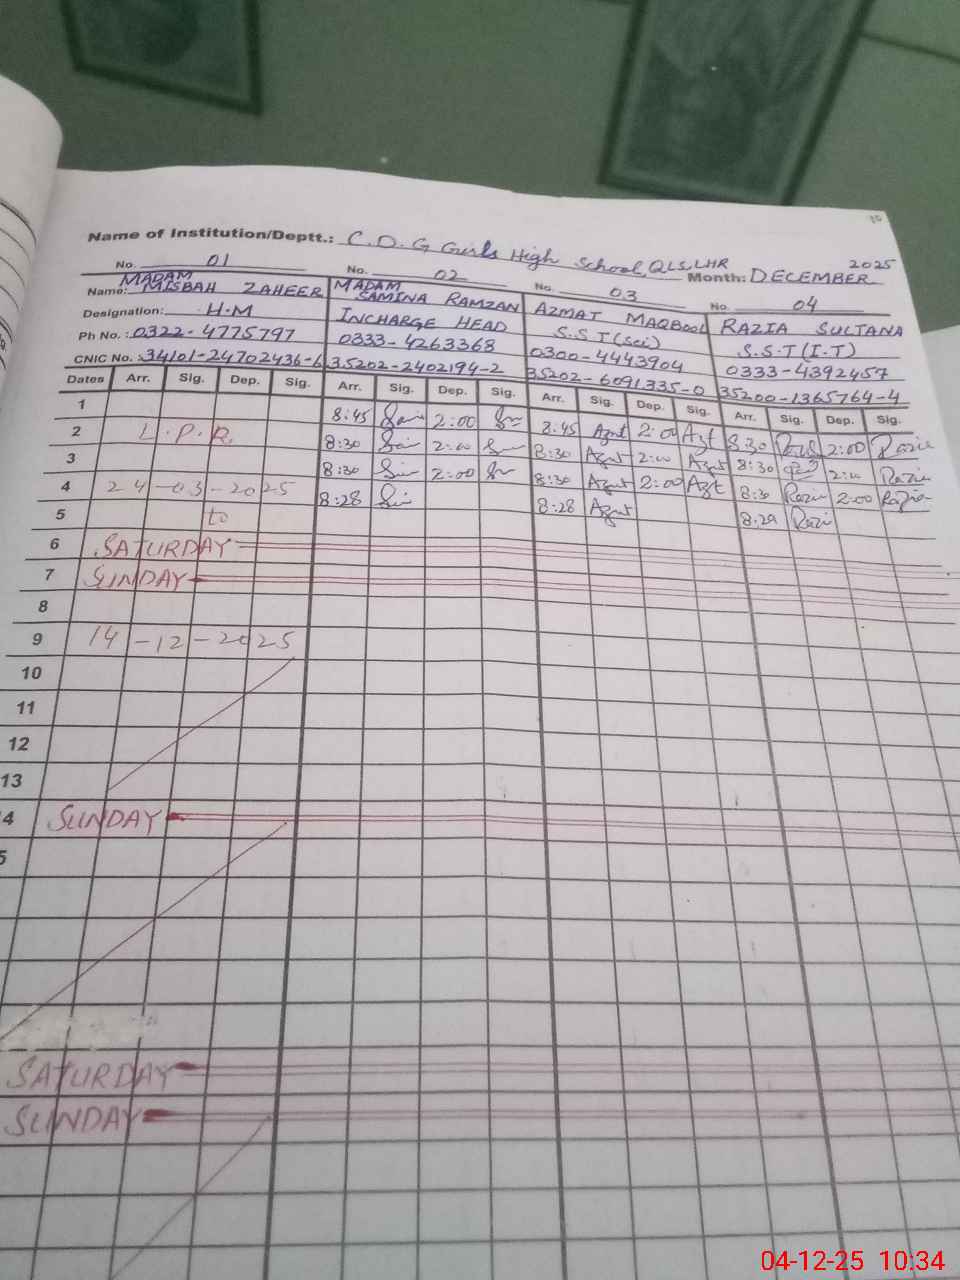 10
Name of Institution/Deptt.: C.D.G Girls High School, QLS, LHR Month: DECEMBER 2025
No. 01 No. 02 No. 03 No. 04
Name: MADAM MISBAH ZAHEER MADAM SAMINA RAMZAN AZMAT MAQBOOL RAZIA SULTANA
Designation: H.M INCHARGE HEAD S.S.T (Sci) S.S.T (I.T)
Ph No.: 0322-4775797 0333-4263368 0300-4443904 0333-4392457
CNIC No. 34101-24702436-6 35202-2402194-2 35202-6091335-0 35200-1365764-4
Dates Arr. Sig. Dep. Sig. Arr. Sig. Dep. Sig. Arr. Sig. Dep. Sig. Arr. Sig. Dep. Sig.
1 8:45 2:00 8:45 Azmt 2:00 Azt 8:30 2:00 Razia
2 L.P.R. 8:30 2:00 8:30 Azmt 2:00 Azmt 8:30 2:00 Razia
3 8:30 2:00 8:30 Azmt 2:00 Azt 8:30 Razia 2:00 Razia
4 24-03-2025 8:28 8:28 Azmt 8:29 Razi
5 to
6 SATURDAY
7 SUNDAY
8
9 14-12-2025
10
11
12
13
4 SUNDAY
5
SATURDAY
SUNDAY
04-12-25 10:34